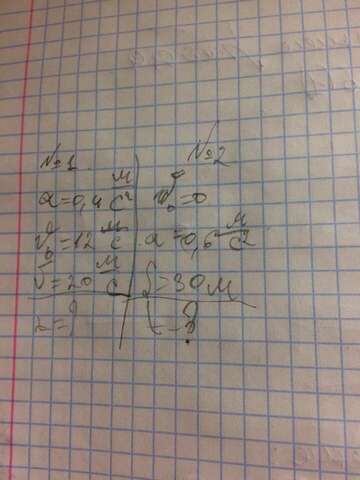 №1
a=0,4 м/с²
V₀=12 м/с
V=20 м/с
t=?
№2
V₀=0
a=0,6 м/с²
S=30м
t-?